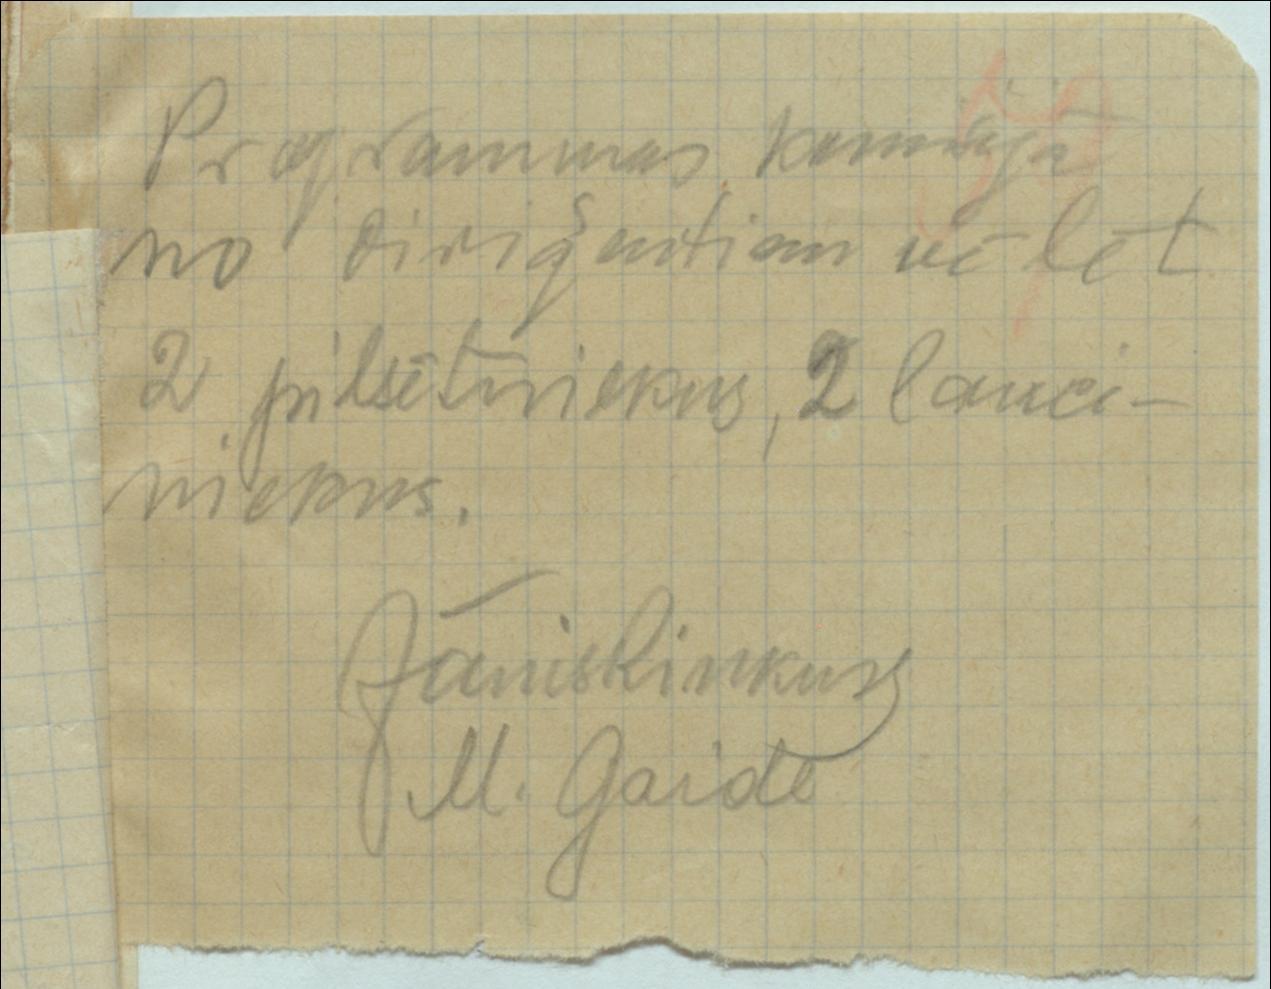 Programmas komisijā
no diriģentiem vēlēt
2 pilsētniekus, 2 lauci-
niekus.
Jānis Linkus
M. Gaide